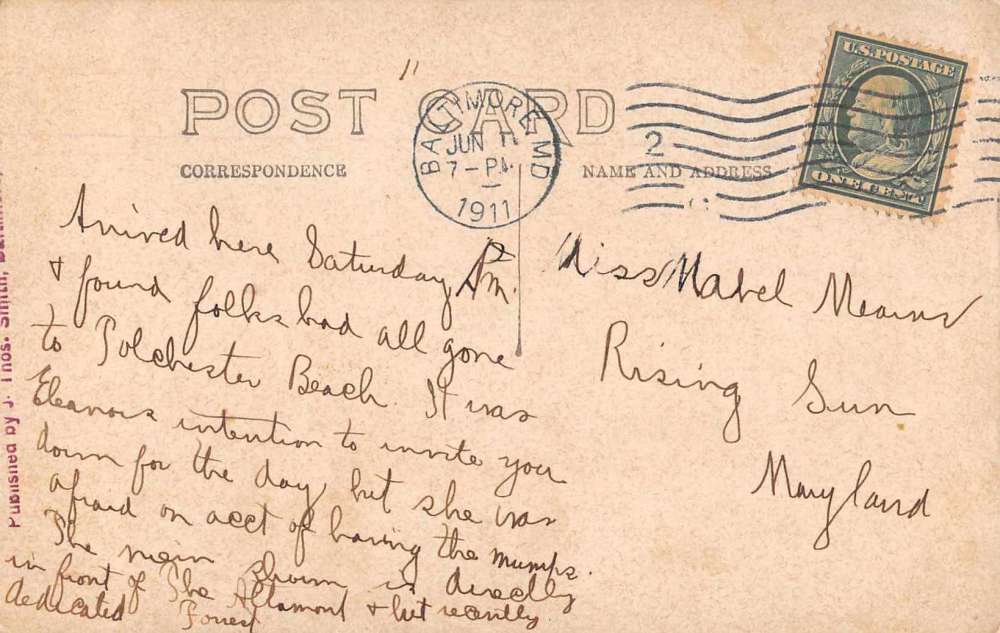 POST CARD
CORRESPONDENCE
NAME AND ADDRESS
BALTIMORE MD
JUN
7 - PM
1911
2
U.S. POSTAGE
ONE CENT
Arrived here Saturday P.M.
& found folks had all gone
to Tolchester Beach. It was
Eleanors intention to invite you
down for the day but she was
afraid on acct of having the mumps.
The view shown is directly
in front of The Altamont & but recently
dedicated
Miss Mabel Mearns
Rising Sun
Maryland
Published by J. Thos. Smith,